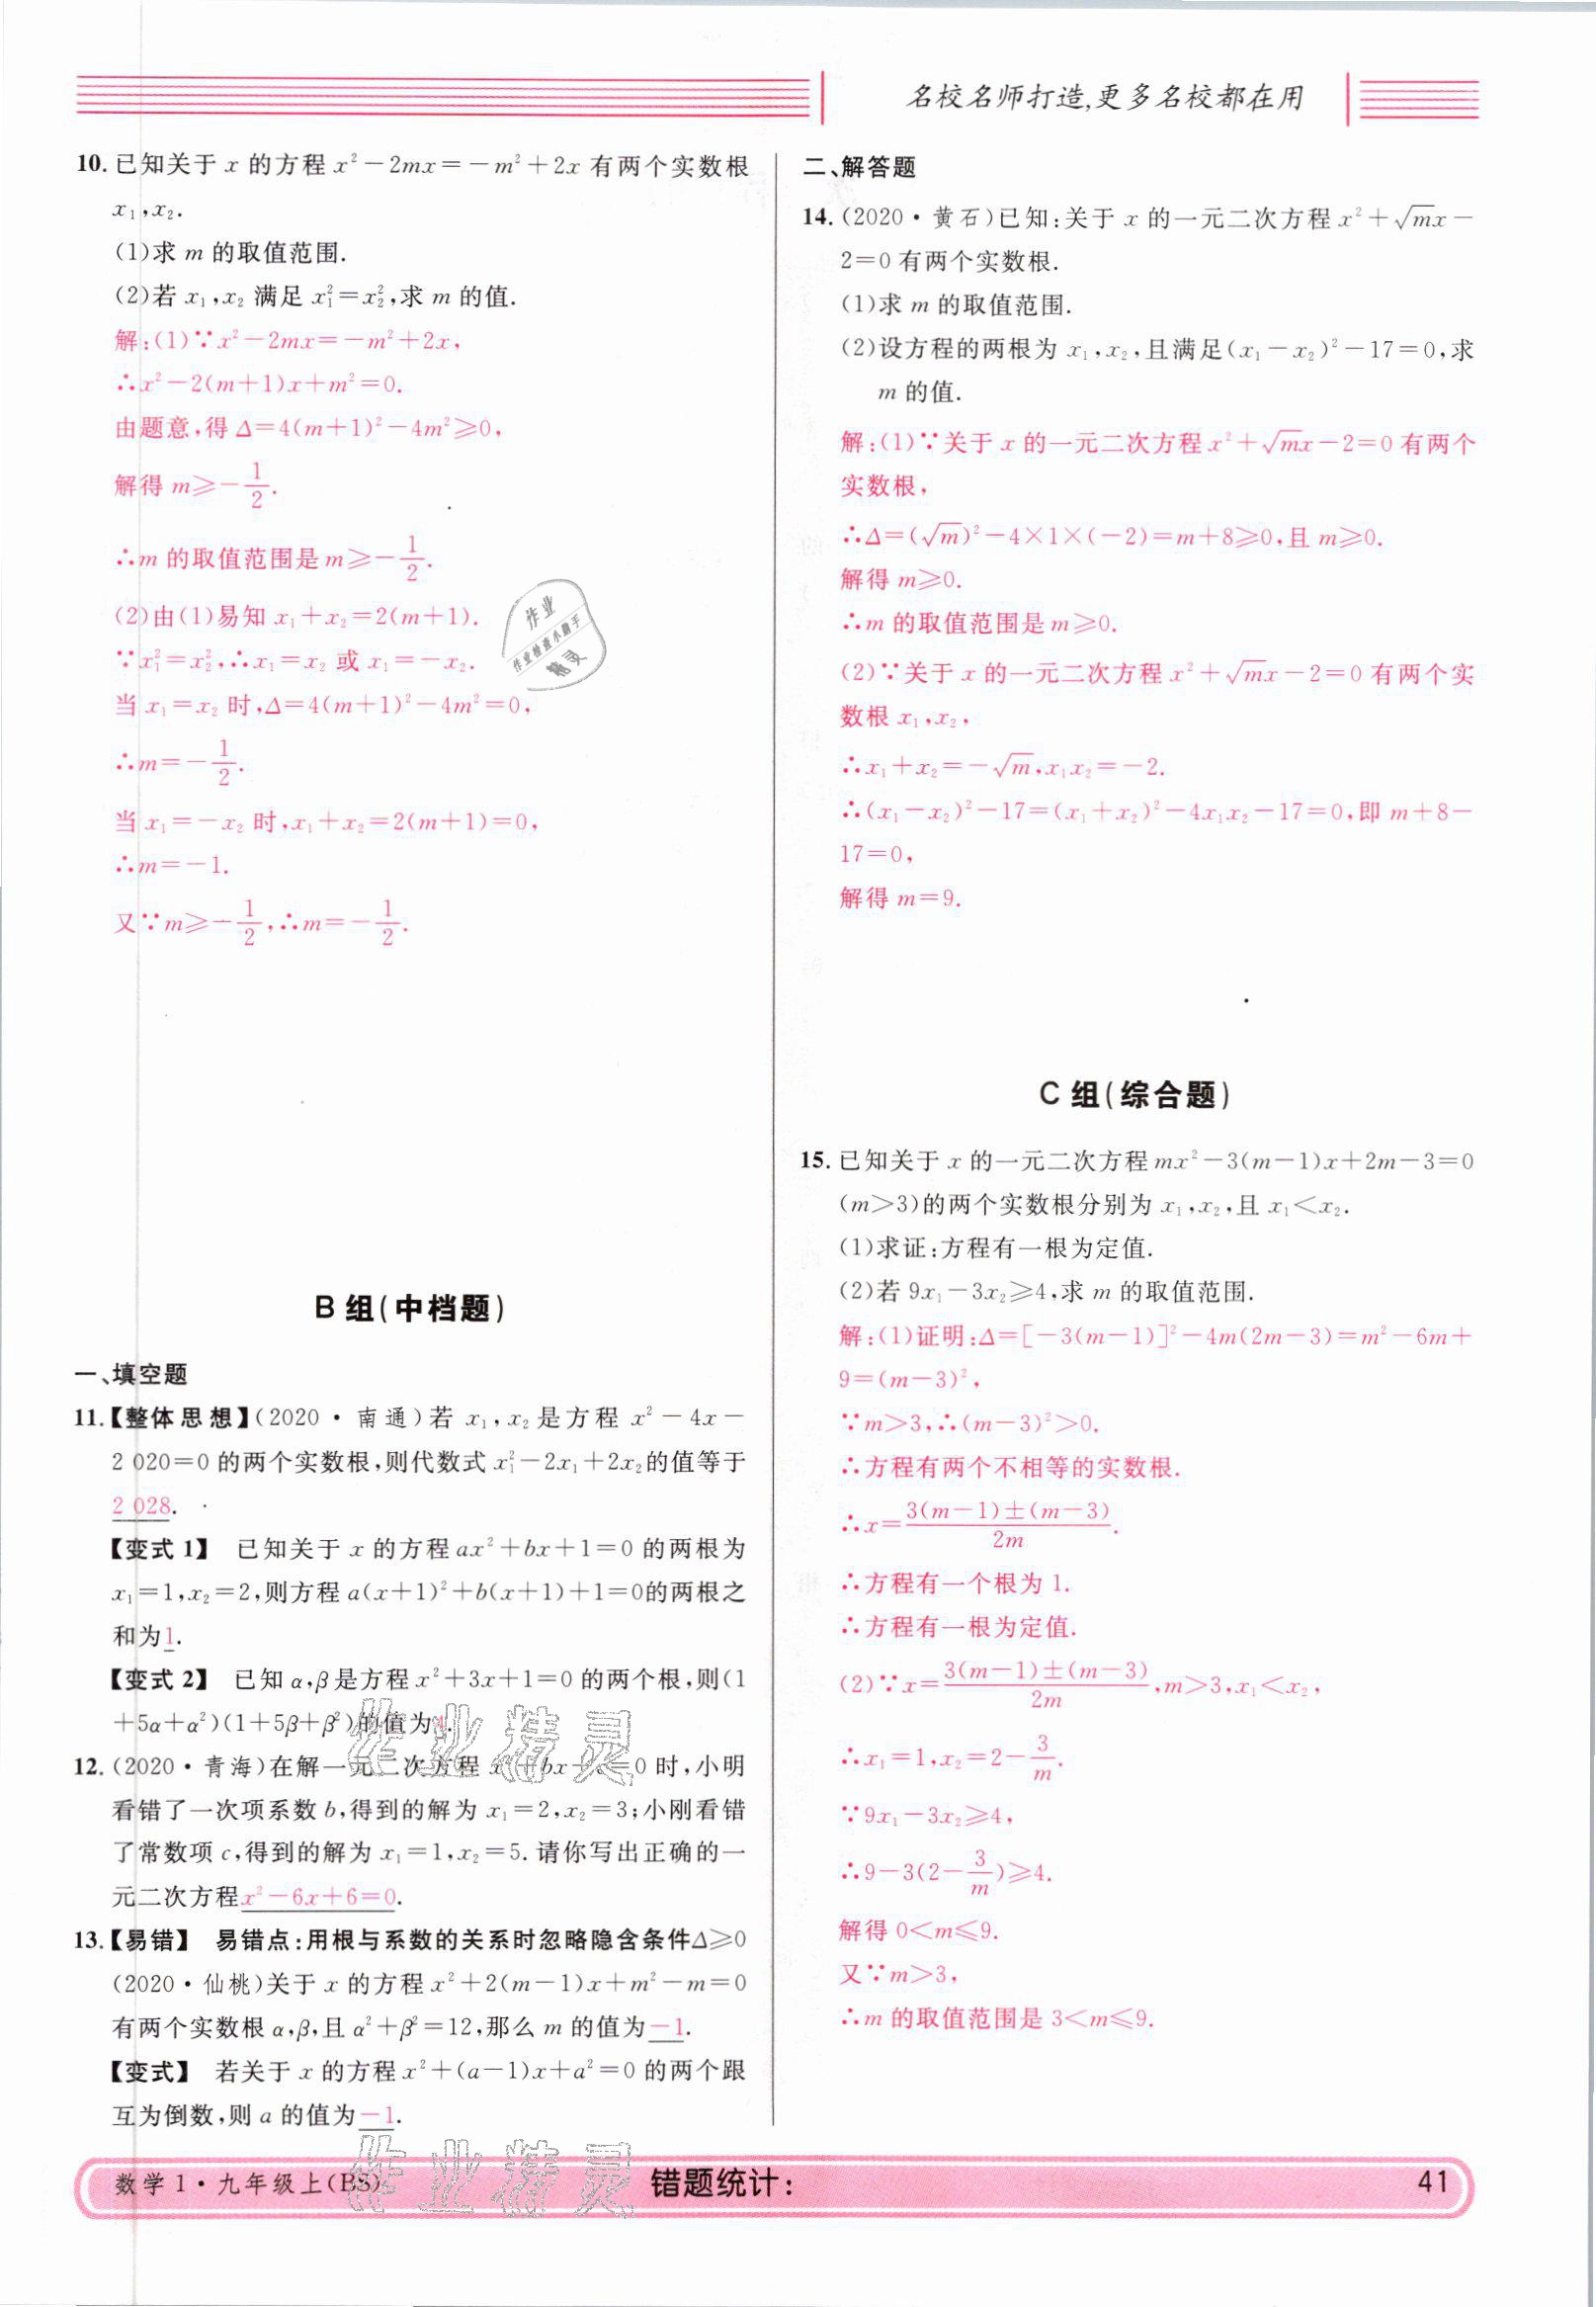 名校名师打造,更多名校都在用
10. 已知关于 x 的方程 x²－2mx＝－m²＋2x 有两个实数根
x₁,x₂.
(1)求 m 的取值范围.
(2)若 x₁,x₂ 满足 x₁²＝x₂²,求 m 的值.
解:(1)∵x²－2mx＝－m²＋2x,
∴x²－2(m＋1)x＋m²＝0.
由题意,得 Δ＝4(m＋1)²－4m²≥0,
解得 m≥－1/2.
∴m 的取值范围是 m≥－1/2.
(2)由(1)易知 x₁＋x₂＝2(m＋1).
∵x₁²＝x₂²,∴x₁＝x₂ 或 x₁＝－x₂.
当 x₁＝x₂ 时,Δ＝4(m＋1)²－4m²＝0,
∴m＝－1/2.
当 x₁＝－x₂ 时,x₁＋x₂＝2(m＋1)＝0,
∴m＝－1.
又∵m≥－1/2,∴m＝－1/2.
作业
作业检查小助手
精灵
B 组(中档题)
一、填空题
11.【整体思想】(2020·南通)若 x₁,x₂ 是方程 x²－4x－
2 020＝0 的两个实数根,则代数式 x₁²－2x₁＋2x₂的值等于
2 028.
【变式 1】 已知关于 x 的方程 ax²＋bx＋1＝0 的两根为
x₁＝1,x₂＝2,则方程 a(x＋1)²＋b(x＋1)＋1＝0的两根之
和为1.
【变式 2】 已知 α,β是方程 x²＋3x＋1＝0 的两个根,则(1
＋5α＋α²)(1＋5β＋β²)的值为4.
12. (2020·青海)在解一元二次方程 x²＋bx＋c＝0 时,小明
看错了一次项系数 b,得到的解为 x₁＝2,x₂＝3;小刚看错
了常数项 c,得到的解为 x₁＝1,x₂＝5. 请你写出正确的一
元二次方程x²－6x＋6＝0.
13.【易错】 易错点:用根与系数的关系时忽略隐含条件Δ≥0
(2020·仙桃)关于 x 的方程 x²＋2(m－1)x＋m²－m＝0
有两个实数根 α,β,且 α²＋β²＝12,那么 m 的值为－1.
【变式】 若关于 x 的方程 x²＋(a－1)x＋a²＝0 的两个跟
互为倒数,则 a 的值为－1.
二、解答题
14. (2020·黄石)已知:关于 x 的一元二次方程 x²＋√mx－
2＝0 有两个实数根.
(1)求 m 的取值范围.
(2)设方程的两根为 x₁,x₂,且满足(x₁－x₂)²－17＝0,求
m 的值.
解:(1)∵关于 x 的一元二次方程 x²＋√mx－2＝0 有两个
实数根,
∴Δ＝(√m)²－4×1×(－2)＝m＋8≥0,且 m≥0.
解得 m≥0.
∴m 的取值范围是 m≥0.
(2)∵关于 x 的一元二次方程 x²＋√mx－2＝0 有两个实
数根 x₁,x₂,
∴x₁＋x₂＝－√m,x₁x₂＝－2.
∴(x₁－x₂)²－17＝(x₁＋x₂)²－4x₁x₂－17＝0,即 m＋8－
17＝0,
解得 m＝9.
C 组(综合题)
15. 已知关于 x 的一元二次方程 mx²－3(m－1)x＋2m－3＝0
(m＞3)的两个实数根分别为 x₁,x₂,且 x₁＜x₂.
(1)求证:方程有一根为定值.
(2)若 9x₁－3x₂≥4,求 m 的取值范围.
解:(1)证明:Δ＝[－3(m－1)]²－4m(2m－3)＝m²－6m＋
9＝(m－3)²,
∵m＞3,∴(m－3)²＞0.
∴方程有两个不相等的实数根.
∴x＝3(m－1)±(m－3)/2m.
∴方程有一个根为 1.
∴方程有一根为定值.
(2)∵x＝3(m－1)±(m－3)/2m,m＞3,x₁＜x₂,
∴x₁＝1,x₂＝2－3/m.
∵9x₁－3x₂≥4,
∴9－3(2－3/m)≥4.
解得 0＜m≤9.
又∵m＞3,
∴m 的取值范围是 3＜m≤9.
作业精灵
作业精灵
数学 1·九年级上(BS)
错题统计:
41